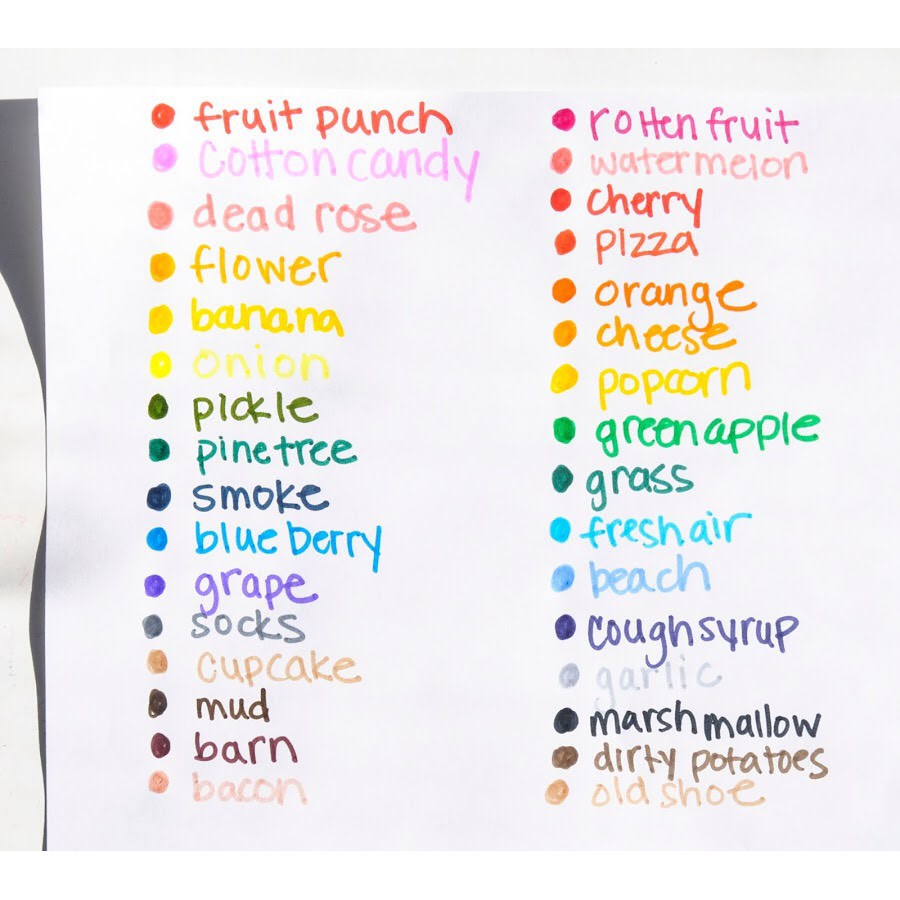 fruit punch
cotton candy
dead rose
flower
banana
onion
pickle
pinetree
smoke
blueberry
grape
socks
cupcake
mud
barn
bacon
rotten fruit
watermelon
cherry
pizza
orange
cheese
popcorn
green apple
grass
fresh air
beach
cough syrup
garlic
marshmallow
dirty potatoes
old shoe